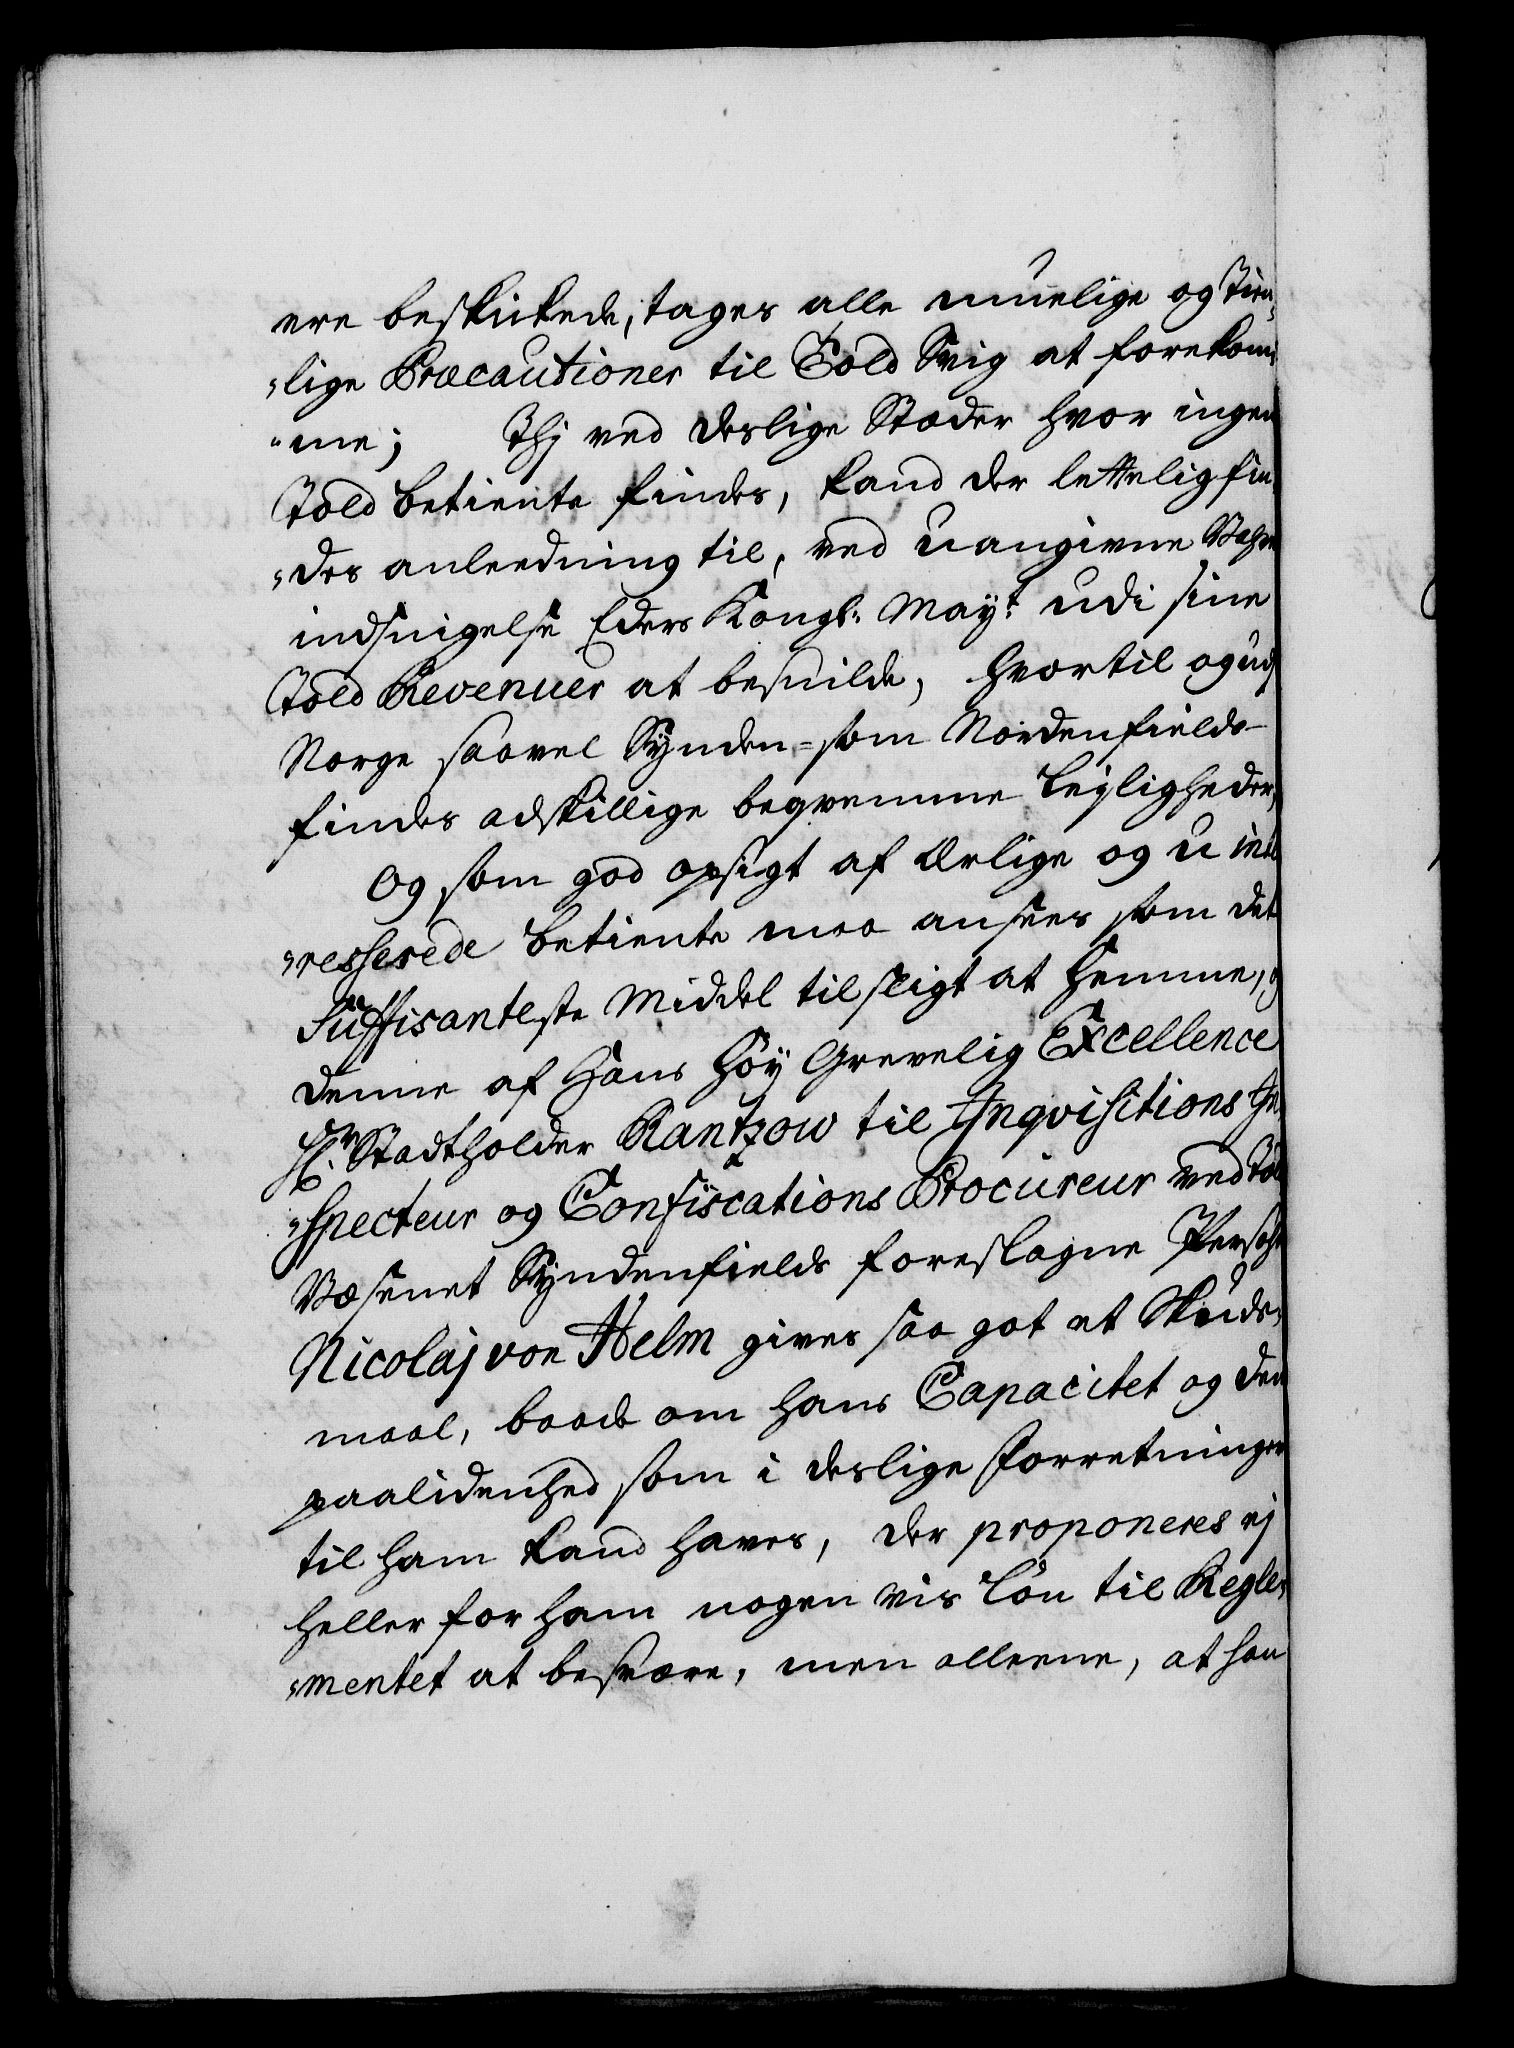 ere beskikede, tages alle muelige og tien-
"lige Præcautioner til Told Svig at forekom-
"me; Thj ved deslige Stæder hvor ingen
Told betiente findes, kand der lettelig fin-
"des anleedning til, ved uangivne Vahre
indsnigelse Eders Kongl: Mayt: udi sine
Told Revenuer at besnilde, hvortil og udj
Norge saavel Synden- som Nordenfields-
findes adskillige beqvemme Leyligheder,
Og som god opsigt af ærlige og u inte
"resserede betiente maa ansees som det
Suffisanteste Middel til sligt at hemme, og
denne af Hans Høy Grevelig Excellence
Hr. Stadtholder Rantzow til Inqvisitions In
"specteur og Confiscations Procureur ved Told
Væsenet Syndenfields foreslagne Persohn
Nicolaj von Helm gives saa got et Skuds-
maal, baade om hans Capacitet og den
paalidenhed som i deslige Forretninger
til ham kand haves, der proponeres ej
heller for ham nogen vis Løn til Regle-
"mentet at besvære, men alleene, at han